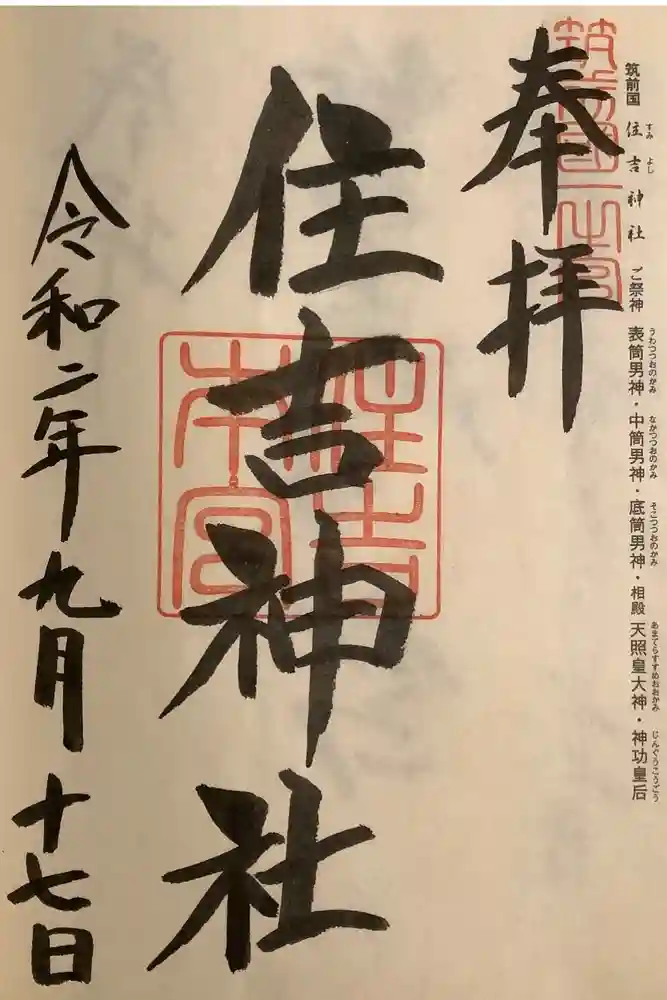 筑前国 住吉神社 ご祭神 表筒男神・中筒男神・底筒男神・相殿 天照皇大神・神功皇后
すみ よし うわつつおのかみ なかつつおのかみ そこつつおのかみ あまてらすすめおおかみ じんぐうこうごう
筑前國一之宮
奉拝
住吉神社
住吉本宮
令和二年九月十七日